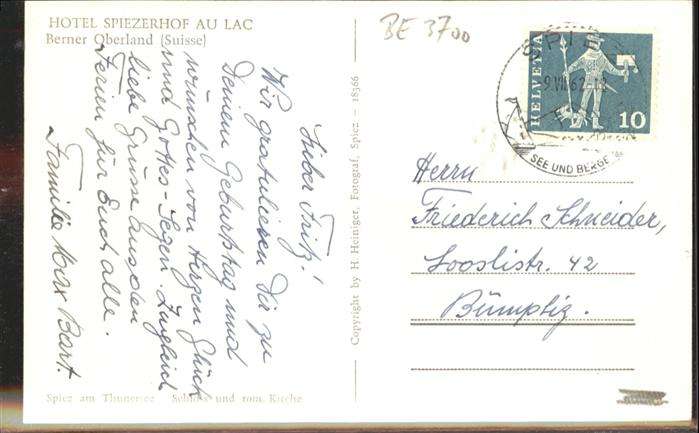 HOTEL SPIEZERHOF AU LAC
Berner Oberland (Suisse)
BE 3700
Lieber Fritz!
Wir gratulieren Dir zu
Deinem Geburtstag und
wünschen von Herzen Glück
und Gottes-Segen. Zugleich
liebe Grüsse aus den
Ferien für Euch alle.
Familie Max Bart.
Spiez am Thunersee Schloss und rom. Kirche
Copyright by H. Heiniger, Fotograf, Spiez – 18366
HELVETIA
10
SPIEZ
9.VII.62
SEE UND BERGE
Herrn
Friederich Schneider,
Looslistr. 42
Bümpliz.